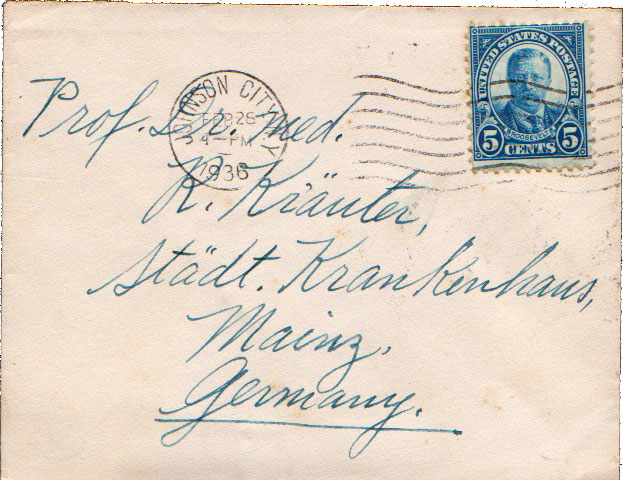 UNITED STATES POSTAGE
ROOSEVELT
5 CENTS 5
JOHNSON CITY N.Y.
FEB 26
4-PM
1936
Prof. Dr. med.
R. Kräuter,
Städt. Krankenhaus,
Mainz,
Germany.